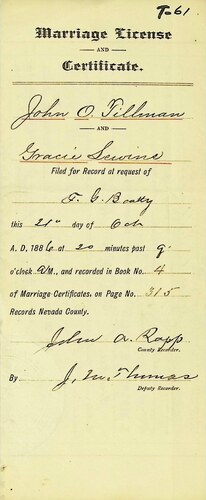 T-61
Marriage License
AND
Certificate.
John O. Tillman
AND
Gracie
Filed for Record at request of
F. C. Beatty
this 21st day of Oct
A. D, 1886 at 20 minutes past 9
o'clock A M, and recorded in Book No. 4
of Marriage Certificates, on Page No. 315
Records Nevada County.
John A. Rapp
County Recorder.
By J. M. Thomas
Deputy Recorder.